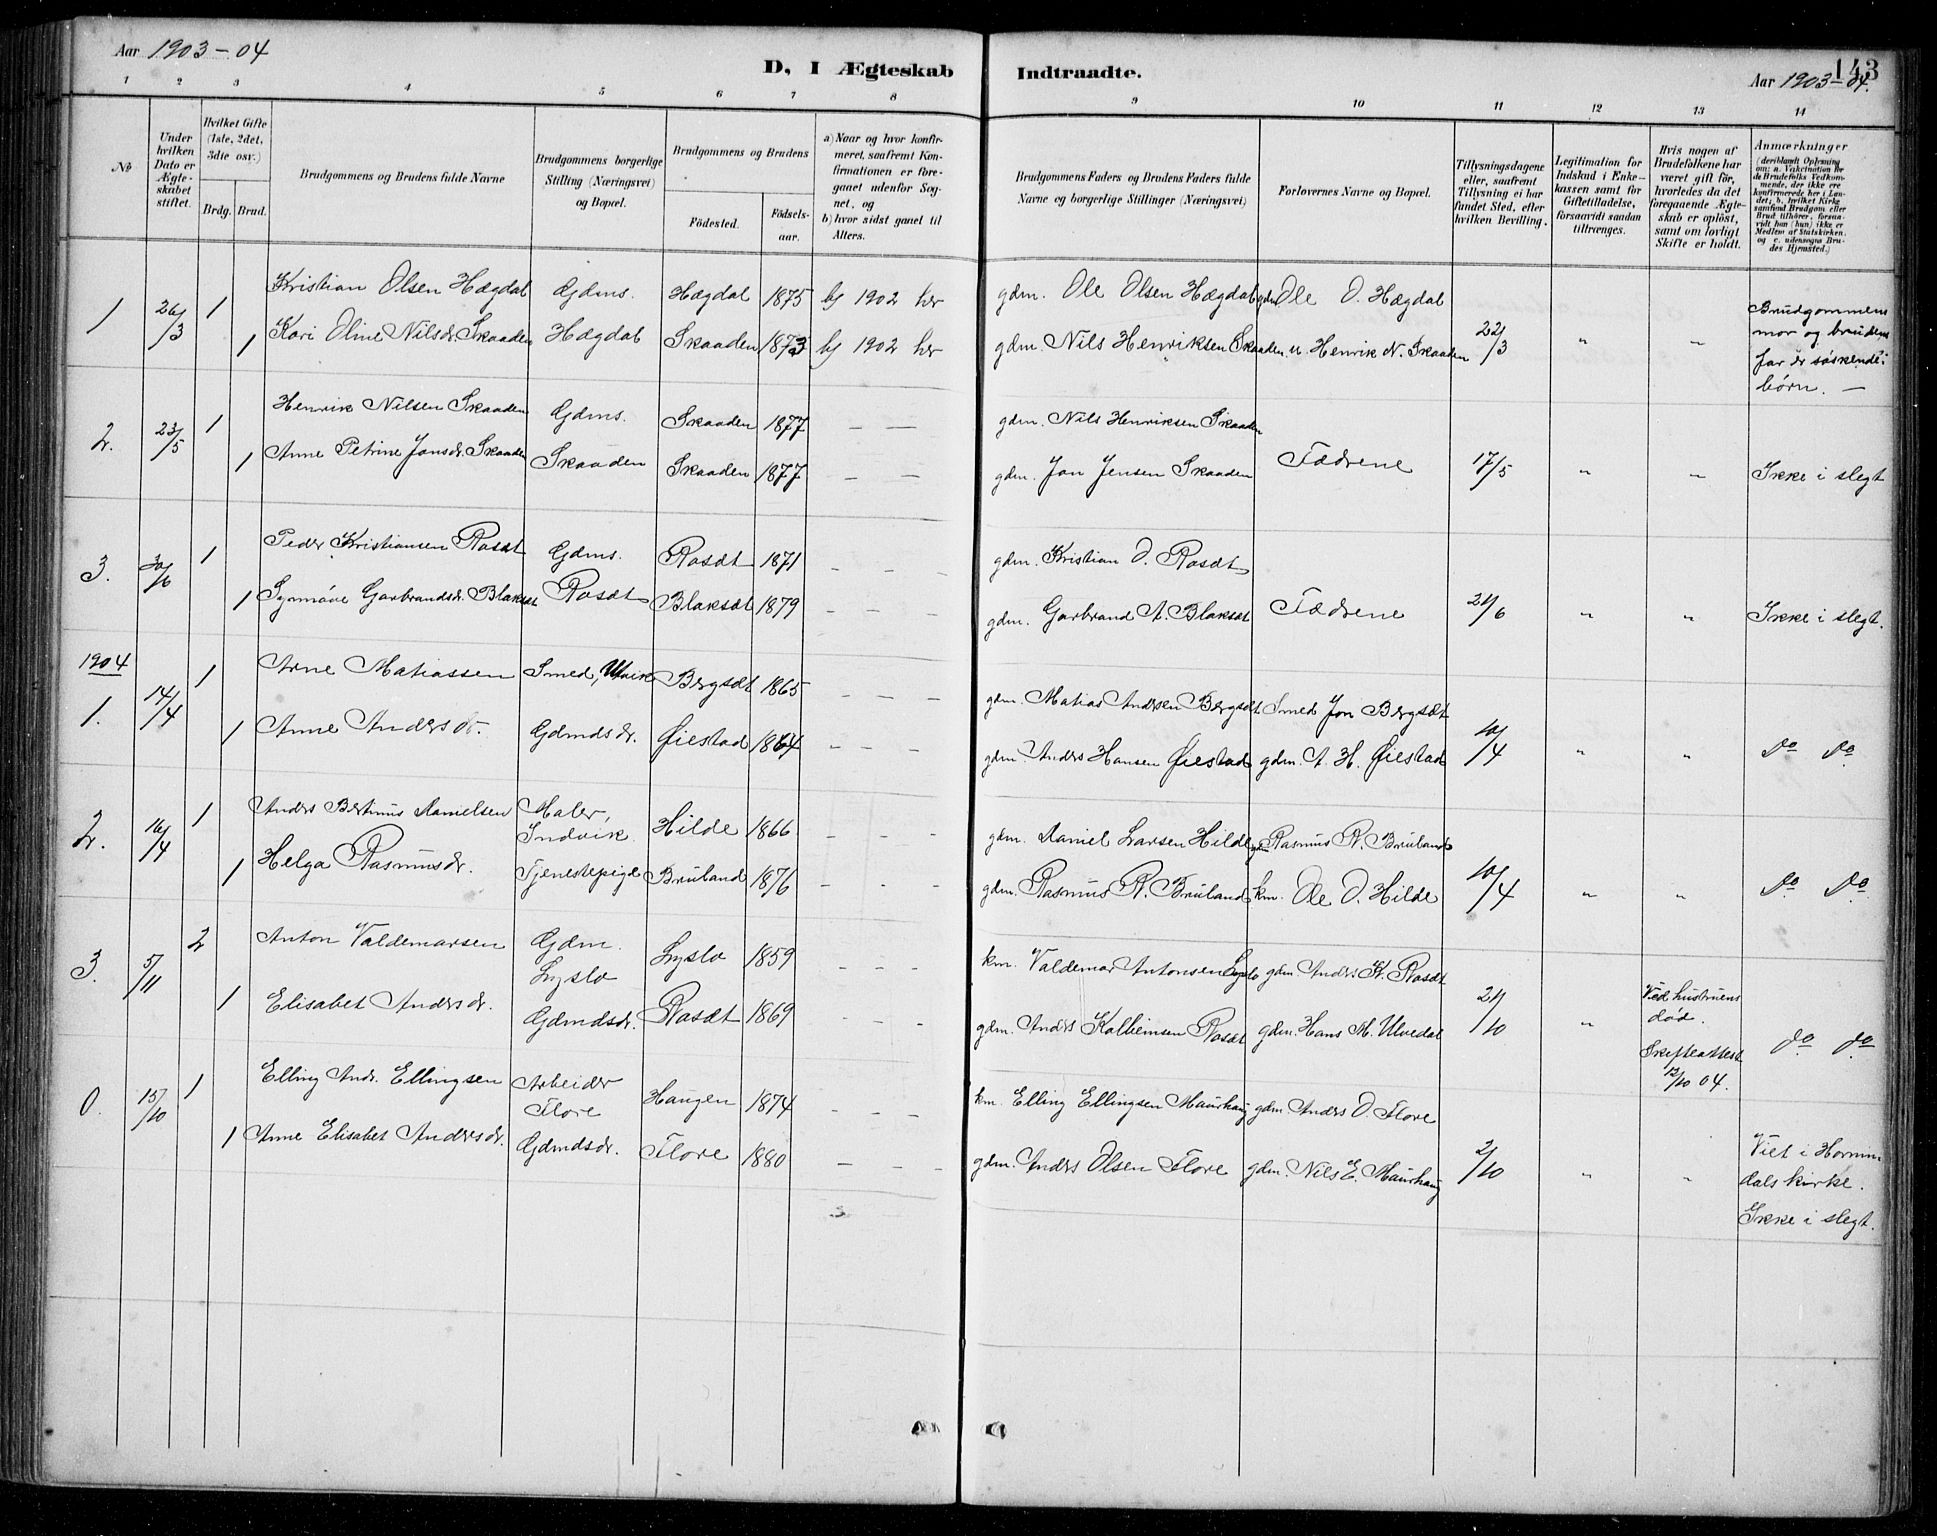 Aar 1903-04
D, I Ægteskab
Indtraadte.
143
Aar 1903-04.
1 2 3 4 5 6 7 8
9 10 11 12 13 14
No
Under hvilken Dato er Ægteskabet stiftet.
Hvilket Gifte (1ste, 2det, 3die osv.)
Brdg. Brud.
Brudgommens og Brudens fulde Navne
Brudgommens borgerlige Stilling (Næringsvei) og Bopæl.
Brudgommens og Brudens
Fødested.
Fødselsaar.
a) Naar og hvor konfirmeret, saafremt Konfirmationen er foregaaet udenfor Sognet, og
b) hvor sidst gaaet til Alters.
Brudgommens Faders og Brudens Faders fulde Navne og borgerlige Stillinger (Næringsvei)
Forlovernes Navne og Bopæl.
Tillysningsdagene eller, saafremt Tillysning ei har fundet Sted, efter hvilken Bevilling.
Legitimation for Indskud i Enkekassen samt for Giftetilladelse, forsaavidt saadan tiltrænges.
Hvis nogen af Brudefolkene har været gift før, hvorledes da det foregaaende Ægteskab er opløst, samt om lovligt Skifte er holdt.
Anmærkninger
(deriblandt Oplysning om: a. Vakcination for de Brudefolks Vedkommende, der ikke ere konfirmerede her i Landet; b. hvilket Kirkesamfund Brudgom eller Brud tilhører, forsaavidt han (hun) ikke er Medlem af Statskirken, og c. udensogns Brudes Hjemsted.)
1 26/3 1 Kristian Olsen Hægdal Gdms. Hægdal 1875 b) 1902 her gdm. Ole Olsen Hægdal gdm Ole O. Hægdal
1 Kari Oline Nilsdr. Skaaden Hægdal Skaaden 1873 b) 1902 her gdm. Nils Henriksen Skaaden u. Henrik N. Skaaden 22/3 " " Brudgommens mor og brudens far er søskendebørn. —
2. 23/5 1 Henrik Nilsen Skaaden Gdms. Skaaden 1877 — — gdm. Nils Henriksen Skaaden
1 Anne Petrine Jonsdr. Skaaden Skaaden Skaaden 1877 — — gdm. Jon Jensen Skaaden Fædrene 17/5 " " Ikke i slegt
3. 30/6 1 Peder Kristiansen Rosæt Gdms. Rosæt 1871 — — — gdm. Kristian O. Rosæt
1 Synnøve Garbrandsdr. Blaksæt Rosæt Blaksæt 1879 — — — gdm. Garbrand A. Blaksæt Fædrene 21/6 " " Ikke i slegt.
1904
1. 14/4 1 Arne Matiassen Smed, Utvik Bergsæt 1865 — — — gdm. Matias Andersen Bergsæt Smed Jon Bergsæt
1 Anne Andersdr. Gdmdsdr. Øiestad 1864 — — — gdm. Anders Hansen Øiestad gdm. A. H. Øiestad 10/4 " " do do
2. 16/4 1 Anders Bertinus Danielsen Maler, Indvik Hilde 1866 — — — gdm. Daniel Larsen Hilde gdm Rasmus R. Bruland
1 Helga Rasmusdr. Tjenestepige Bruland 1876 — — — gdm. Rasmus R. Bruland km. Ole O. Hilde 10/4 " " do do
3. 5/11 2 Anton Valdemarsen Gdm. Lyslo Lyslo 1859 — — — km. Valdemar Antonsen Lyslo gdm. Anders K. Rosæt
1 Elisabet Andersdr. Gdmdsdr. Rosæt 1869 — — — gdm. Anders Kolbeinsen Rosæt gdm. Hans M. Ulvedal 21/10 " Ved hustruens død. Skifteattest 12/10 04. do do
0. 15/10 1 Elling Andr. Ellingsen Arbeider Flore Haugen 1874 — — — km. Elling Ellingsen Maurhaug gdm. Anders O. Flore
1 Anne Elisabet Andersdr. Gdmdsdr. Flore 1880 — — — gdm. Anders Olsen Flore gdm. Nils E. Maurhaug 2/10 " " Viet i Hornindals kirke. Ikke i slegt.